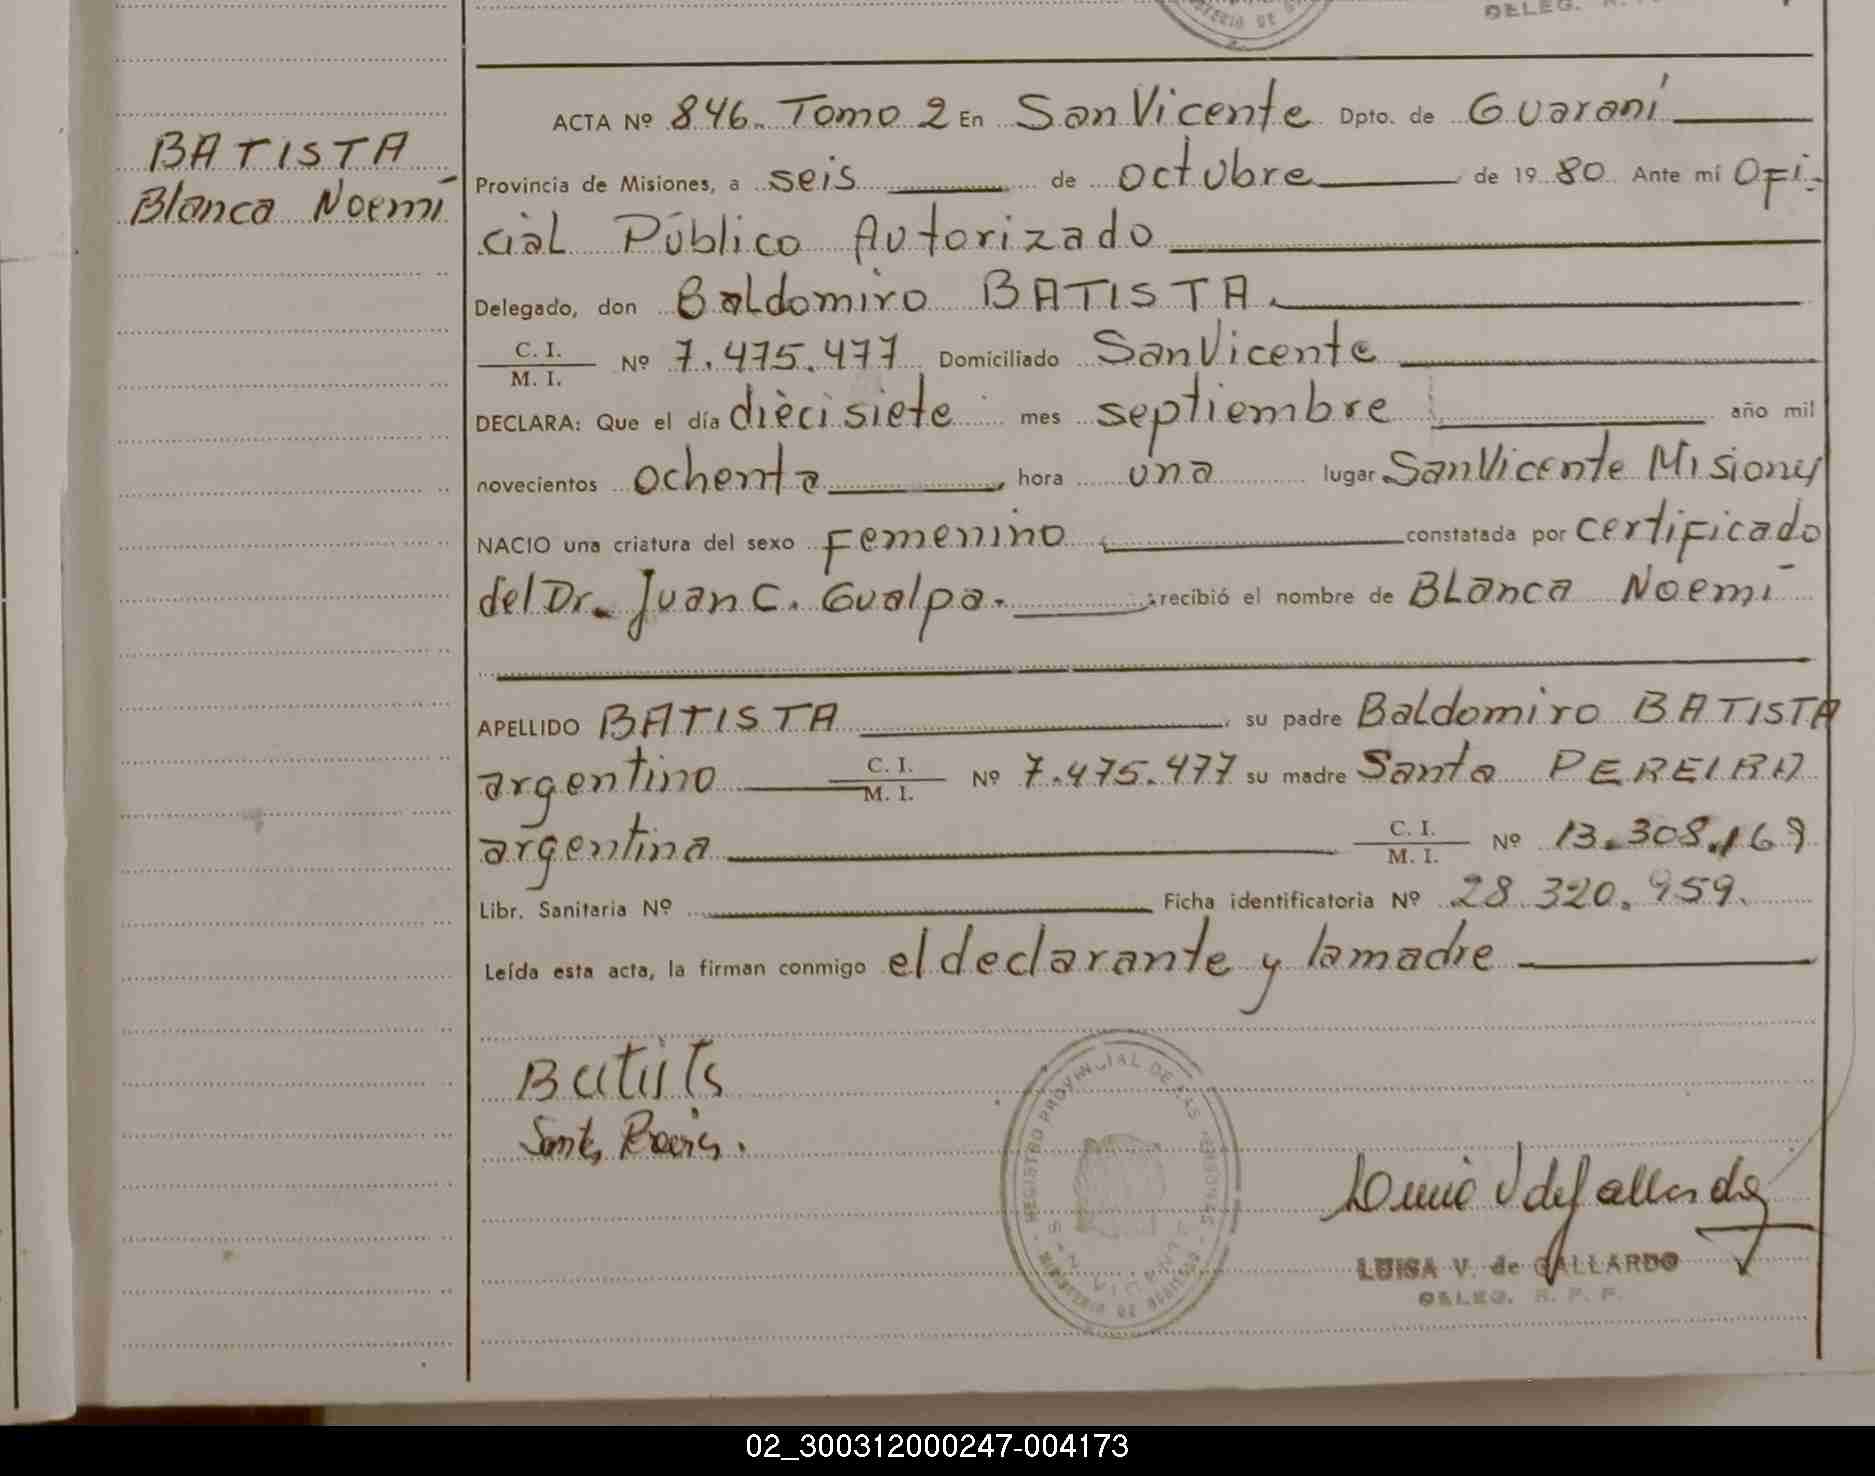 DELEG.
BATISTA
Blanca Noemí
ACTA Nº 846. Tomo 2 En San Vicente Dpto. de Guaraní
Provincia de Misiones, a seis de octubre de 1980 Ante mí Ofi-
cial Público Autorizado
Delegado, don Baldomiro BATISTA
C. I.
M. I. Nº 7.475.477 Domiciliado San Vicente
DECLARA: Que el día diecisiete mes septiembre año mil
novecientos ochenta hora una lugar San Vicente Misiones
NACIO una criatura del sexo Femenino constatada por certificado
del Dr. Juan C. Gualpa. recibió el nombre de Blanca Noemí
APELLIDO BATISTA su padre Baldomiro BATISTA
argentino C. I.
M. I. Nº 7.475.477 su madre Santa PEREIRA
argentina C. I.
M. I. Nº 13.308.169
Libr. Sanitaria Nº Ficha identificatoria Nº 28.320.959.
Leída esta acta, la firman conmigo el declarante y la madre
REGISTRO PROVINCIAL DE LAS PERSONAS
SAN VICENTE
MINISTERIO DE GOBIERNO
LUISA V. de GALLARDO
DELEG. R. P. P.
02_300312000247-004173